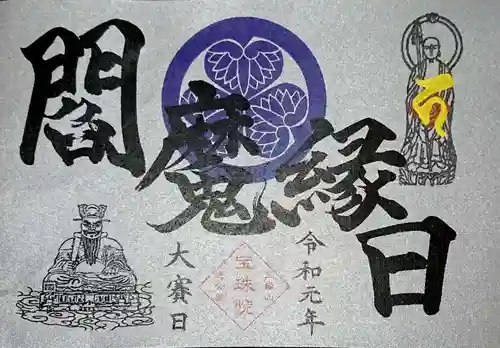 閻魔縁日
大賽日
令和元年
宝珠院